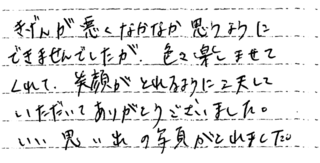 きげんが悪くなかなか思うように
できませんでしたが、色々楽しませて
くれて、笑顔がとれるように工夫して
いただいてありがとうございました。
いい思い出の写真がとれました。